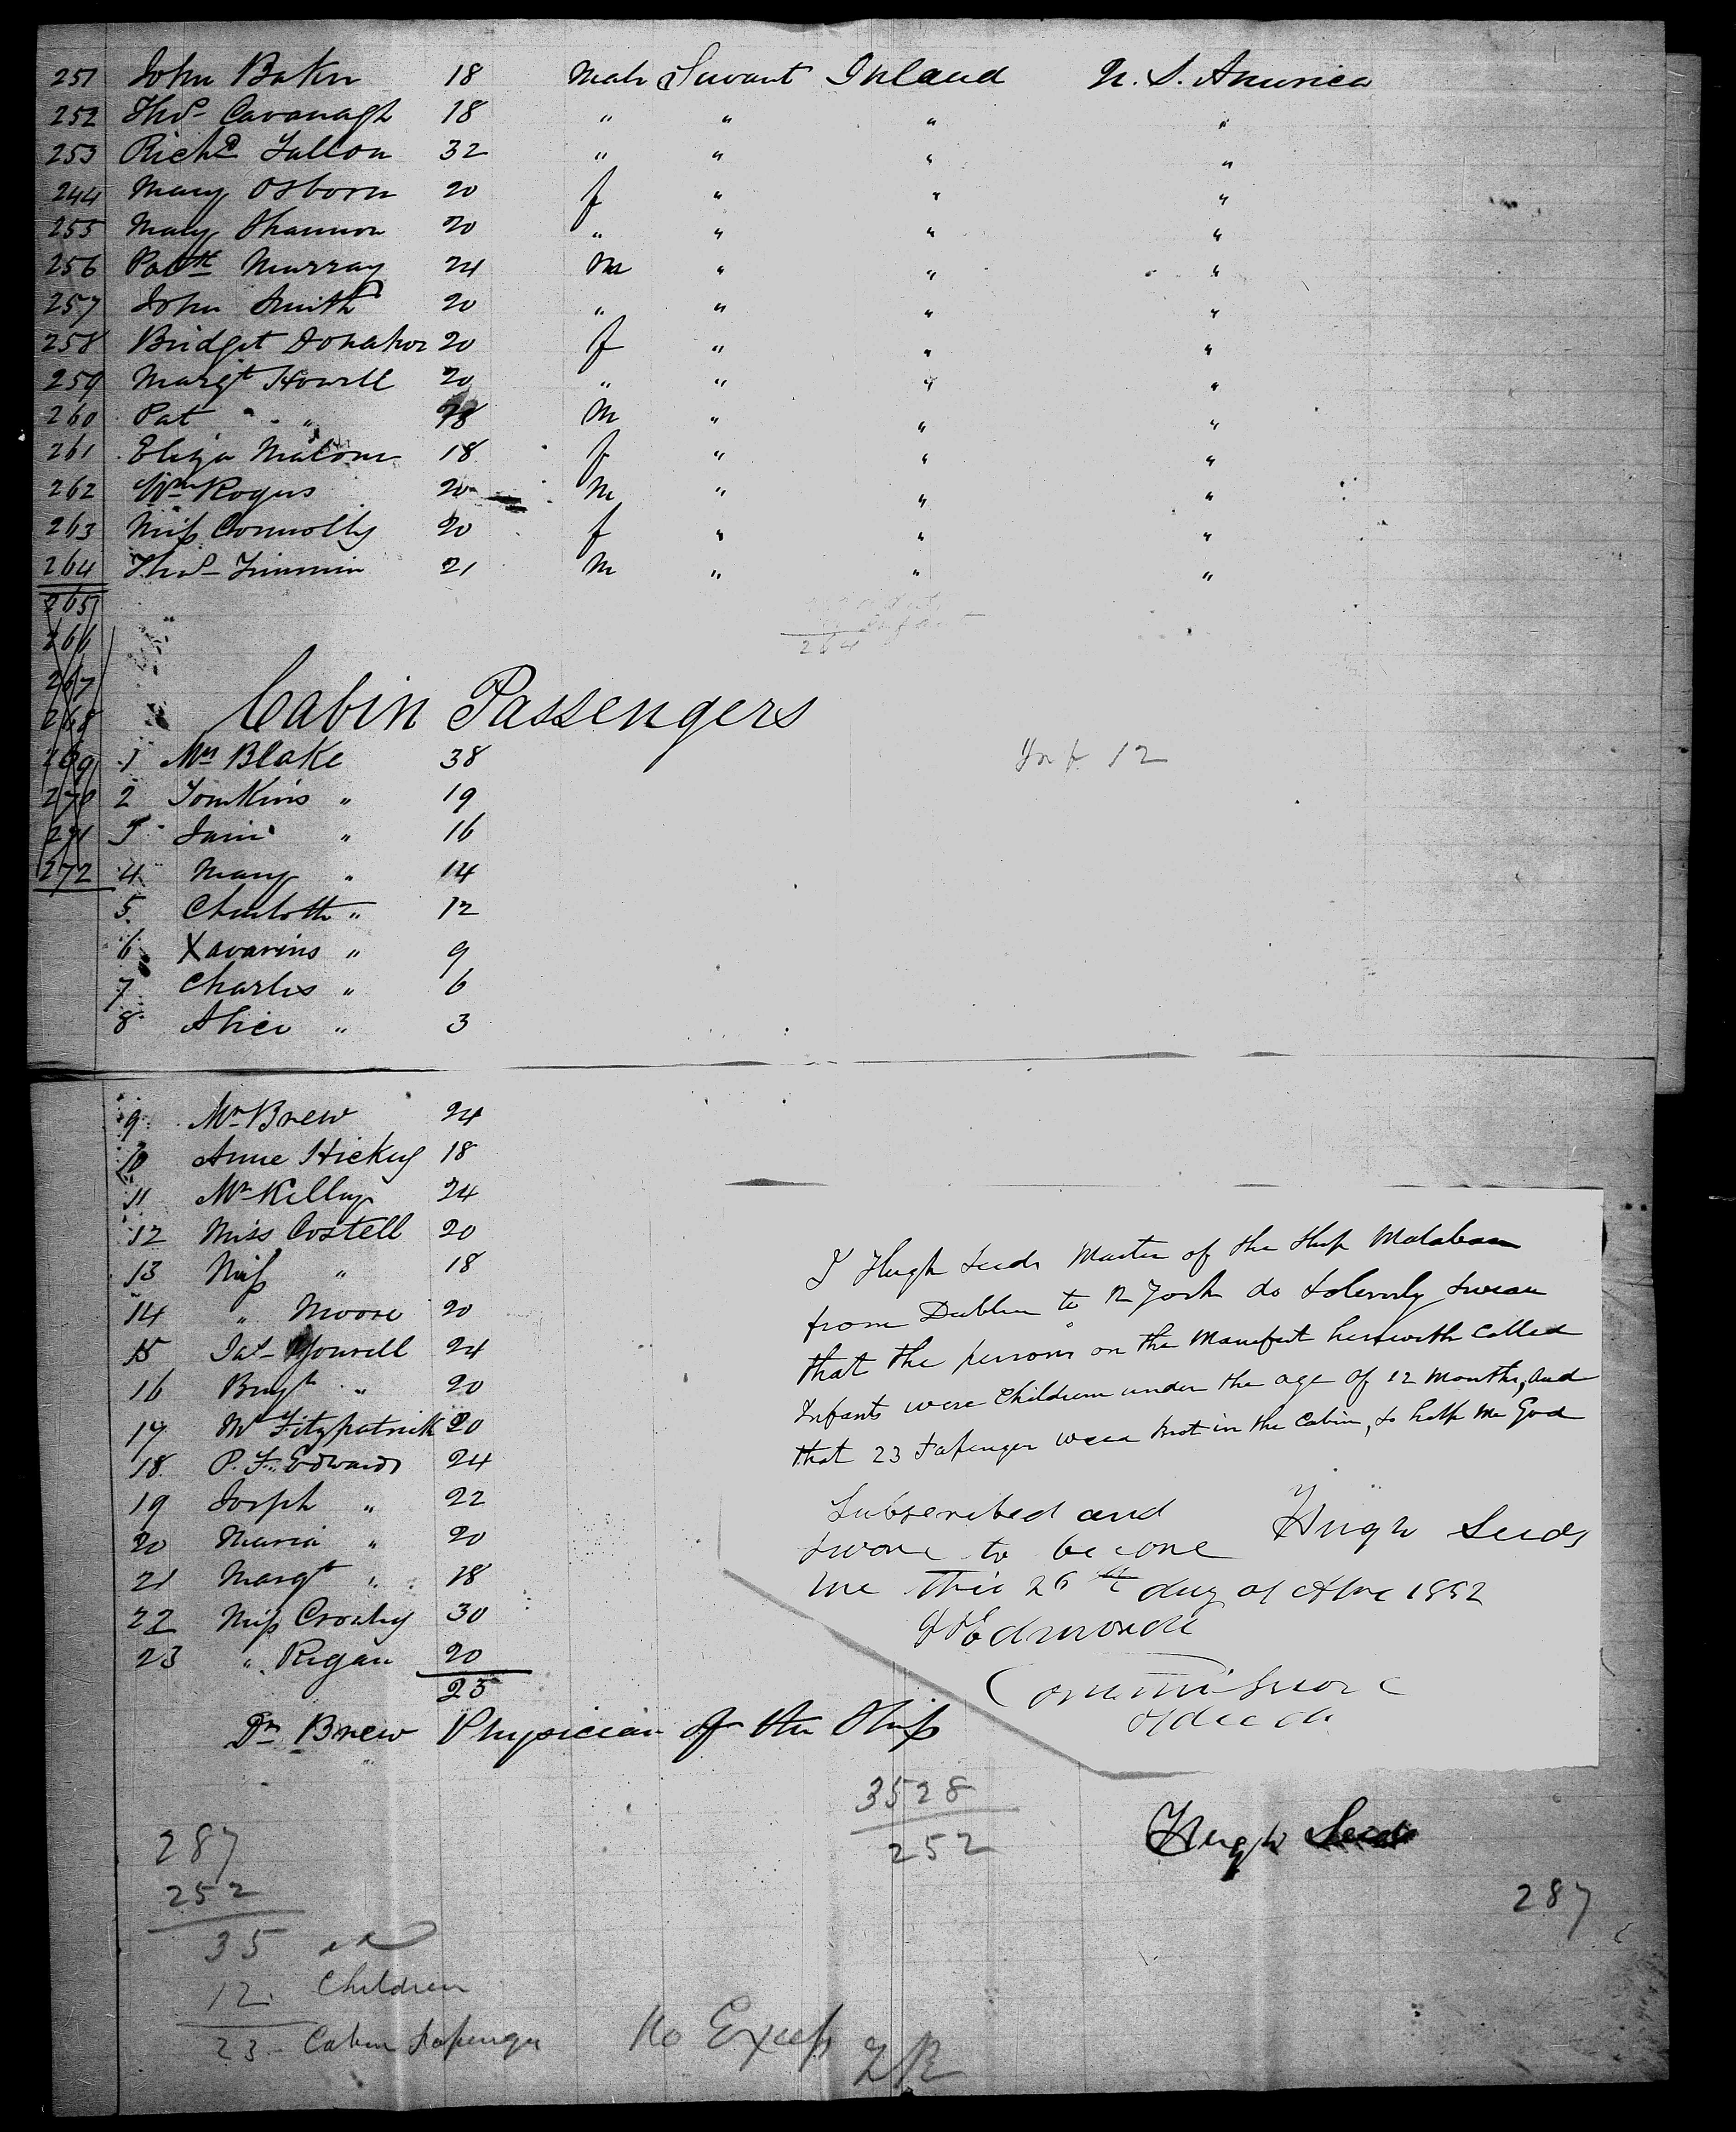 251 John Baker 18 Male Servant Ireland U. S. America
252 Thos Cavanagh 18 " " " "
253 Richd Fallon 32 " " " "
244 Mary Osborn 20 f " " "
255 Mary Shannon 20 " " " "
256 Patk Murray 24 M " " "
257 John Smith 20 " " " "
258 Bridget Donahoe 20 f " " "
259 Margt Howell 20 " " " "
260 Pat " M " " "
261 Eliza Malone 18 f " " "
262 Wm Rogers 20 M " " "
263 Miss Connolly 20 f " " "
264 Thos Timmin 21 M " " "
265
266
267
268
Cabin Passengers
269 1 Mrs Blake 38 Inf 12
270 2 Tomkins " 19
271 3 Jane " 16
272 4 Mary " 14
5 Charlotte " 12
6 Xavarins " 9
7 Charles " 6
8 Alice " 3
9 Mr Brew 24
10 Anne Hickey 18
11 Mr Kelly 24
12 Miss Costell 20
13 Miss " 18
14 " Moore 20
15 Jas Yourell 24
16 " 20
17 Mr Fitzpatrick 20
18 P. F. Edwards 24
19 Joseph " 22
20 Maria " 20
21 Margt " 18
22 Miss Crosby 30
23 " Regan 20
23
Dr Brew Physician of the Ship
I Hugh Seeds Master of the Ship Malabar
from Dublin to N York do Solemnly Swear
that the persons on the Manifest herewith called
Infants were Children under the age of 12 Months, and
that 23 Passenger were but in the Cabin, so help me God
Subscribed and Hugh Seeds
sworn to before
me this 26th day of 1852
Edmonds
Commissioner
of deeds
3528
252
Hugh Seeds
287
287
252
35
12 Children
23 Cabin Passenger
No Excess